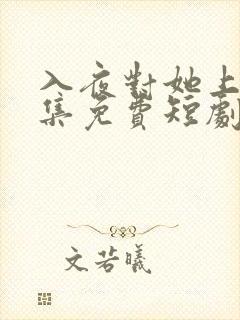 入夜對她上
集免費短劇
文若曦